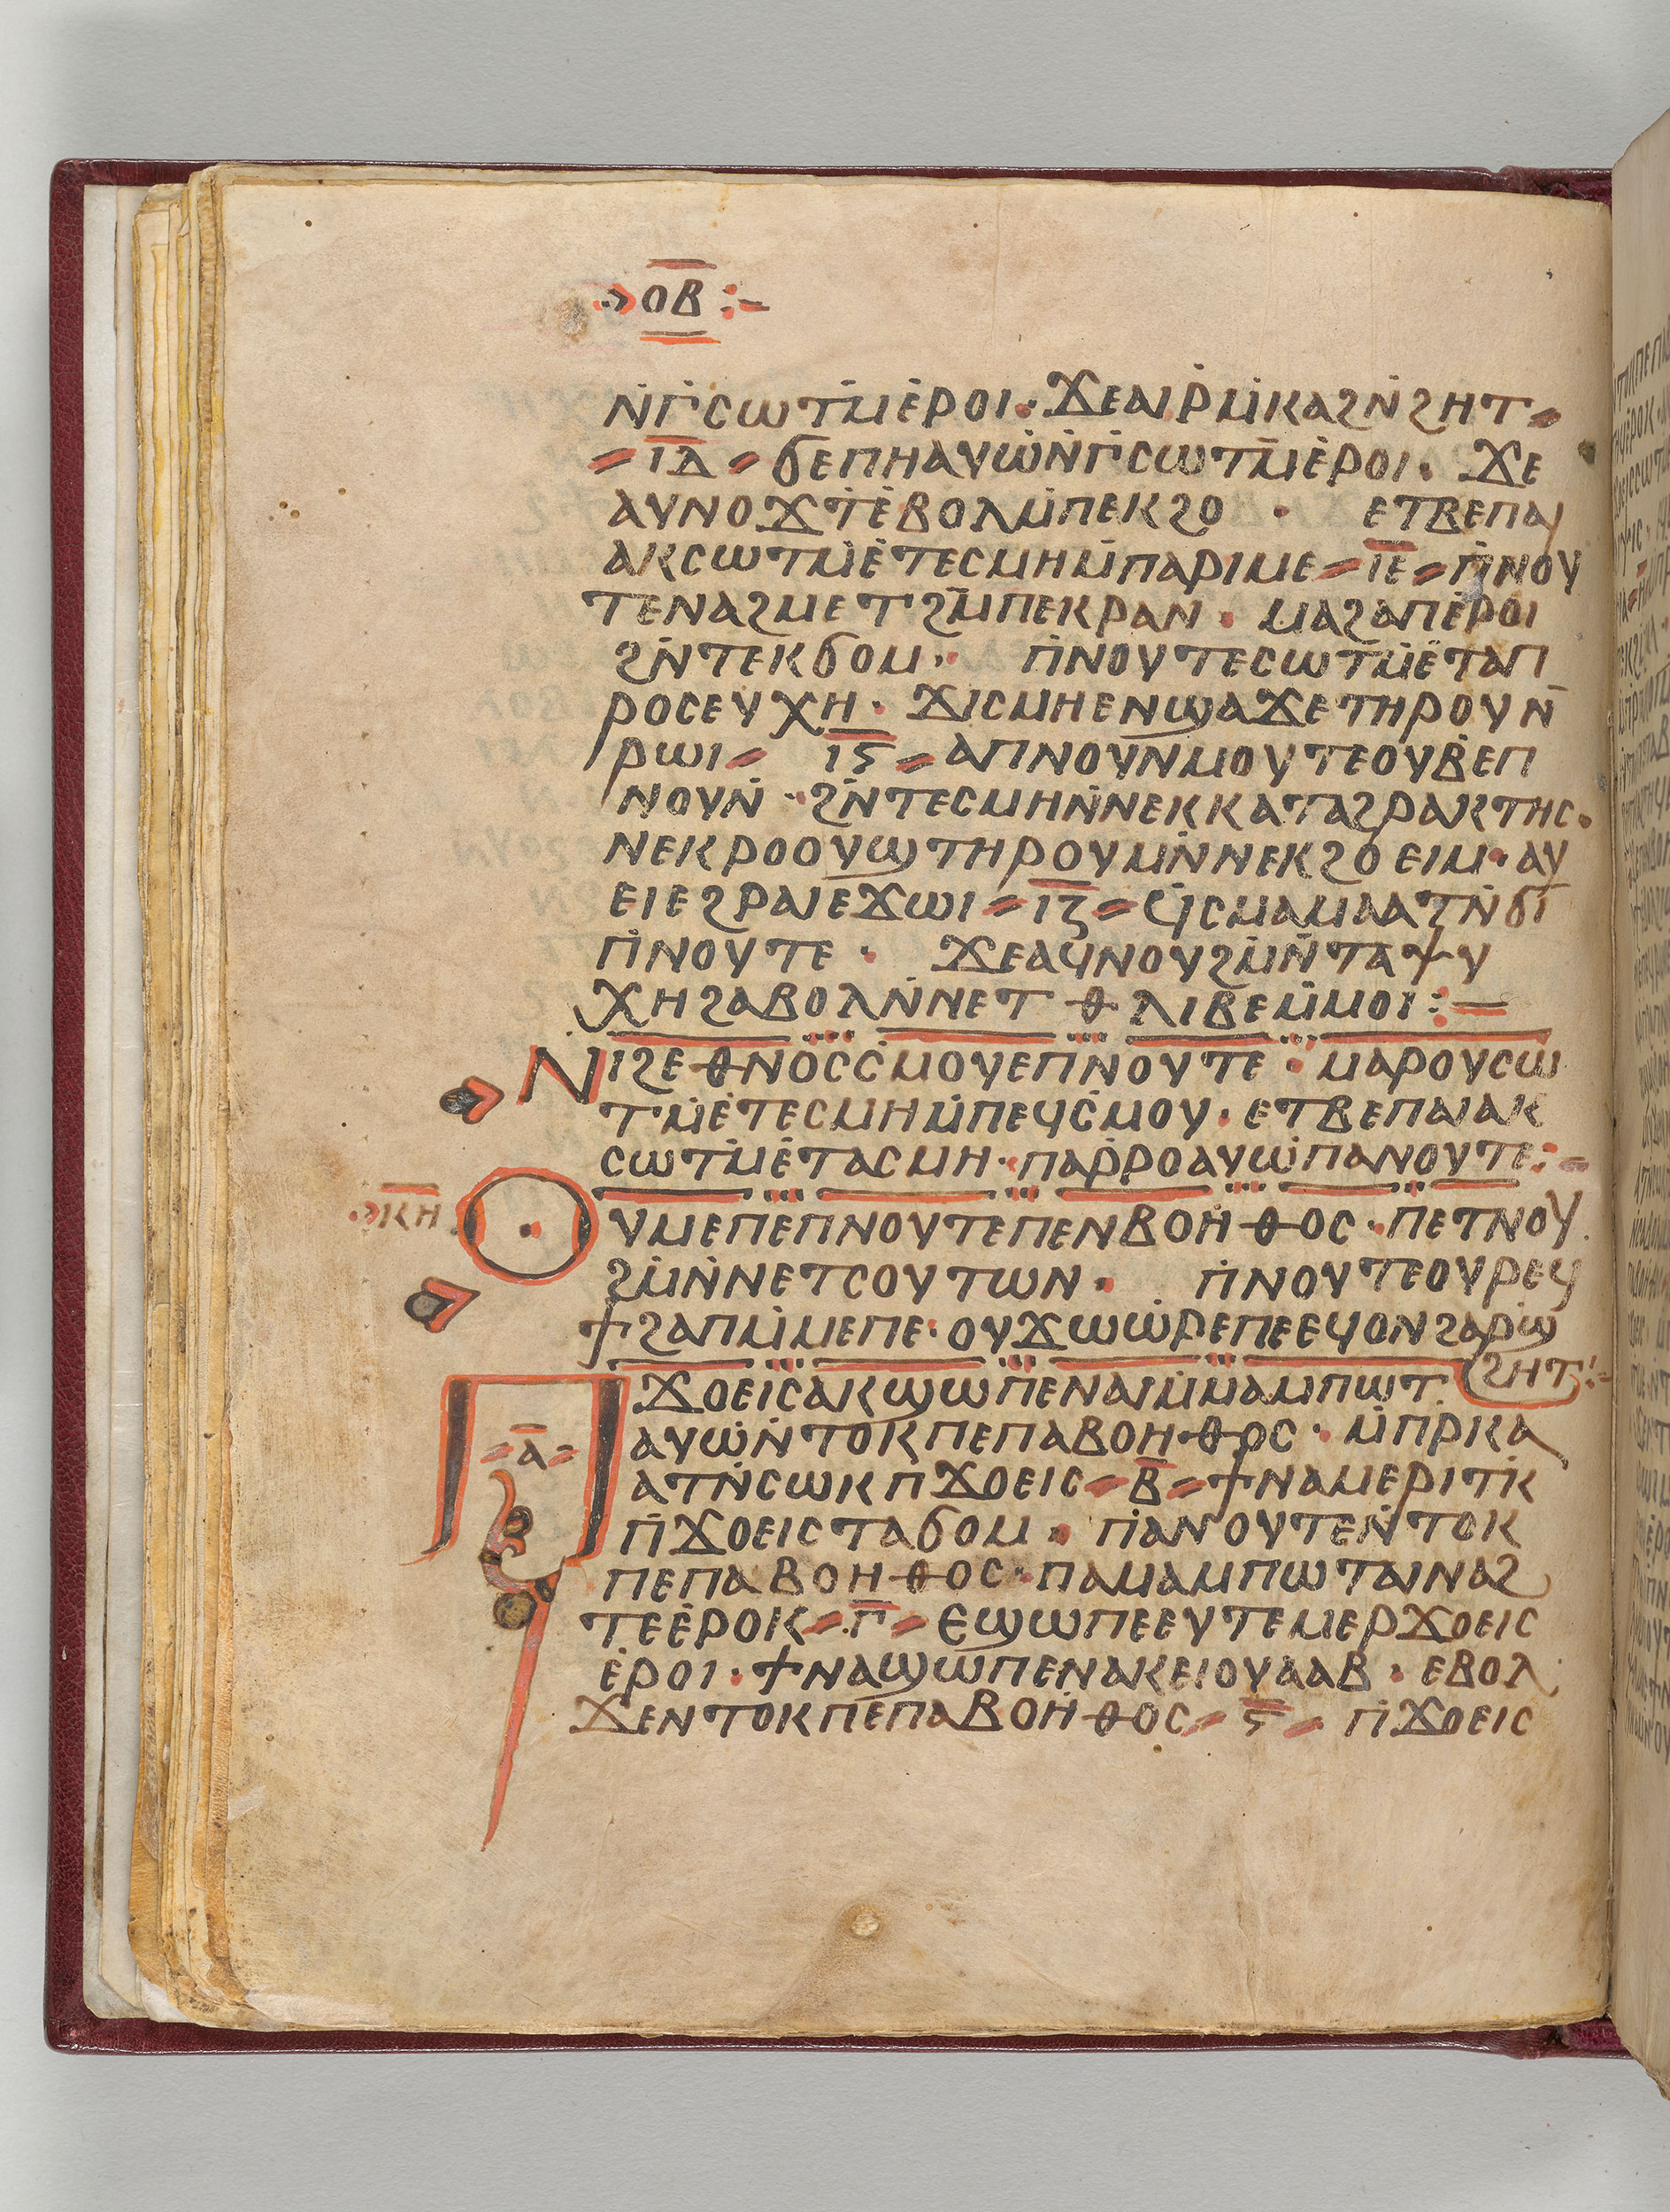 ⲟⲃ :-
ⲛ̇ⲅ̇ⲥⲱⲧⲙ̇ⲉ̇ⲣⲟⲓ · ϫⲉⲁⲓⲣ̇ⲙ̇ⲕⲁϩⲛ̇ϩⲏⲧ=
= ⲓ̅ⲇ̅ = ϭⲉⲡⲏⲁⲩⲱ̇ⲛ̇ⲅ̇ⲥⲱⲧⲙ̇ⲉ̇ⲣⲟⲓ · ϫⲉ
ⲁⲩⲛⲟϫⲧ̇ⲉ̇ⲃⲟⲗⲙ̇ⲡⲉⲕϩⲟ · ⲉⲧⲃⲉⲡⲁⲓ
ⲁⲕⲥⲱⲧⲙ̇ⲉ̇ⲧⲉⲥⲙⲏⲙ̇ⲡⲁⲣⲓⲙⲉ = ⲓ̅ⲉ̅ = ⲡ̇ⲛⲟⲩ
ⲧⲉⲛⲁϩⲙⲉⲧ ϩⲙ̇ⲡⲉⲕⲣⲁⲛ · ⲙⲁϩⲁⲡⲉ̇ⲣⲟⲓ
ϩⲛ̇ⲧⲉⲕϭⲟⲙ · ⲡ̇ⲛⲟⲩⲧⲉⲥⲱⲧⲙ̇ⲉ̇ⲧⲁⲡ
ⲣⲟⲥⲉⲩⲭⲏ · ϫⲓⲥⲙⲏⲉⲛϣⲁϫⲉⲧⲏⲣⲟⲩⲛ̄
ⲣⲱⲓ = ⲓ̅ⲋ̅ = ⲁⲡⲛⲟⲩⲛⲙⲟⲩⲧⲉⲟⲩⲃ̇ⲉⲡ
ⲛⲟⲩⲛ̇ · ϩⲛ̇ⲧⲉⲥⲙⲏⲛ̇ⲛⲉⲕⲕⲁⲧⲁϩⲣⲁⲕⲧⲏⲥ ·
ⲛⲉⲕⲣⲟⲟⲩϣⲧⲏⲣⲟⲩⲙⲛ̇ⲛⲉⲕϩⲟⲉⲓⲙ · ⲁⲩ
ⲉⲓⲉϩⲣⲁⲓⲉϫⲱⲓ = ⲓ̅ⲍ̅ = ϥ̇ⲥⲙⲁⲙⲁⲁⲧⲛ̇ϭⲓ
ⲡ̇ⲛⲟⲩⲧⲉ · ϫⲉⲁϥⲛⲟⲩϩⲙ̇ⲛ̄ⲧⲁⲯⲩ
ⲭⲏϩⲁⲃⲟⲗⲛ̇ⲛⲉⲧⲑⲗⲓⲃⲉⲙ̇ⲙⲟⲓ : =
ⲛⲓϩⲉⲑⲛⲟⲥⲥ̇ⲙⲟⲩⲉⲡ̇ⲛⲟⲩⲧⲉ · ⲙⲁⲣⲟⲩⲥⲱ
ⲧⲙ̇ⲉ̇ⲧⲉⲥⲙⲏⲙ̇ⲡⲉϥⲥ̇ⲙⲟⲩ · ⲉⲧⲃⲉⲡⲁⲓⲁⲕ
ⲥⲱⲧⲙ̇ⲉ̇ⲧⲁⲥⲙⲏ · ⲡⲁⲣ̇ⲣⲟⲁⲩⲱ̇ⲡⲁⲛⲟⲩⲧⲉ :-
ⲕ̅ⲏ̅
ⲟⲩⲙⲉⲡⲉⲡⲛⲟⲩⲧⲉⲡⲉⲛⲃⲟⲏ̇ⲑⲟⲥ · ⲡⲉⲧⲛⲟⲩ
ϩⲙ̇ⲛ̇ⲛⲉⲧⲥⲟⲩⲧⲱⲛ · ⲡ̇ⲛⲟⲩⲧⲉⲟⲩⲣⲉϥ
ϯϩⲁⲡⲙ̇ⲙⲉⲡⲉ · ⲟⲩϫⲱⲱ̇ⲣⲉⲡⲉⲉϥⲟⲛϩⲁⲣϣ
ϩⲏⲧ :-
ⲡϫⲟⲉⲓⲥⲁⲕϣⲱⲡⲉⲛⲁⲓⲙ̇ⲙⲁⲙⲡⲱⲧ
= ⲁ̅ =
ⲁⲩⲱ̇ⲛ̇ⲧⲟⲕⲡⲉⲡⲁⲃⲟⲏⲑⲟⲥ · ⲙ̇ⲡⲣ̇ⲕⲁ
ⲁⲧⲛ̇ⲥⲱⲕⲡϫⲟⲉⲓⲥ = ⲃ̅ = ϯⲛⲁⲙⲉⲣⲓⲧⲕ̇
ⲡ̇ϫⲟⲉⲓⲥⲧⲁϭⲟⲙ · ⲡⲁⲛⲟⲩⲧⲉⲛ̇ⲧⲟⲕ
ⲡⲉⲡⲁⲃⲟⲏⲑⲟⲥ · ⲡⲁⲙⲁⲙⲡⲱⲧⲁⲓⲛⲁϩ
ⲧⲉⲉ̇ⲣⲟⲕ = ⲅ̅ = ⲉϣⲱⲡⲉⲉⲩⲧⲉⲙⲉⲣϫⲟⲉⲓⲥ
ⲉ̇ⲣⲟⲓ · ϯⲛⲁϣⲱⲡⲉⲛⲁⲕⲉⲓⲟⲩⲁⲁⲃ · ⲉⲃⲟⲗ
ϫⲉⲛⲧⲟⲕⲡⲉⲡⲁⲃⲟⲏ̇ⲑⲟⲥ = ⲋ̅ = ⲡ̇ϫⲟⲉⲓⲥ